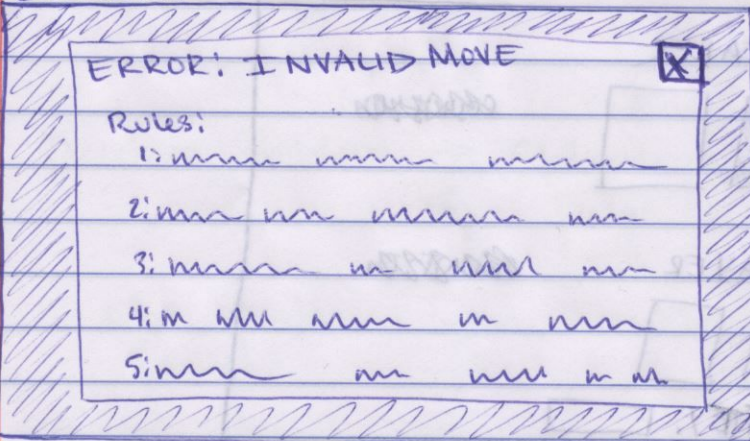 ERROR: INVALID MOVE X
Rules:
1:
2:
3:
4:
5: